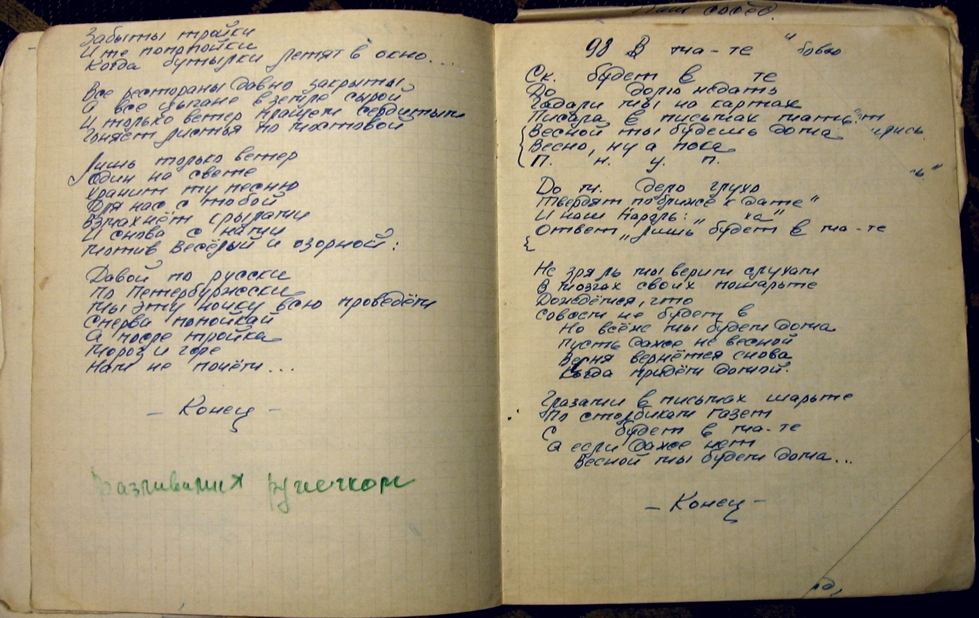 Забыты тройки
И те попойки
Когда бутылки летят в окно...
Все рестораны давно закрыты
А все цыгане в земле сырой
И только ветер плащём сердитым
Гоняет листья по мостовой
Лишь только ветер
Один на свете
Хранит ту песню
Для нас с тобой
Взмахнёт крылами
И снова с нами
Мотив весёлый и озорной:
Давой по русски
По Петербуржски
Мы эту ночку всю проведём
Сперва попойкай
А после тройка
Мороз и горе
Нам не почём...
- Конец -
Разливался ручейком
Ваш сосед.
98 В ма-те "бово
Ск. будет в те
До долю недать
Гадали мы на картах
Писала в письмах мать: т
Весной ты будешь дома
Весно, ну а пока
П. н. у. п.
До м. дело глухо
Твердят поближе к дате"
И наш пароль: " ка"
Ответ „лишь будет в ма-те
Не зря ль мы верим слухам
В мозгах своих пошарьте
Дождёмся, что
совости не будет в
Но всёж мы будем дома
Пусть даже не весной
Верня вернётся снова
Когда придём домой.
Глазами в письмах шарьте
По столбикам газет
С будет в ма-те
А если даже нет
Весной мы будем дома...
- Конец -